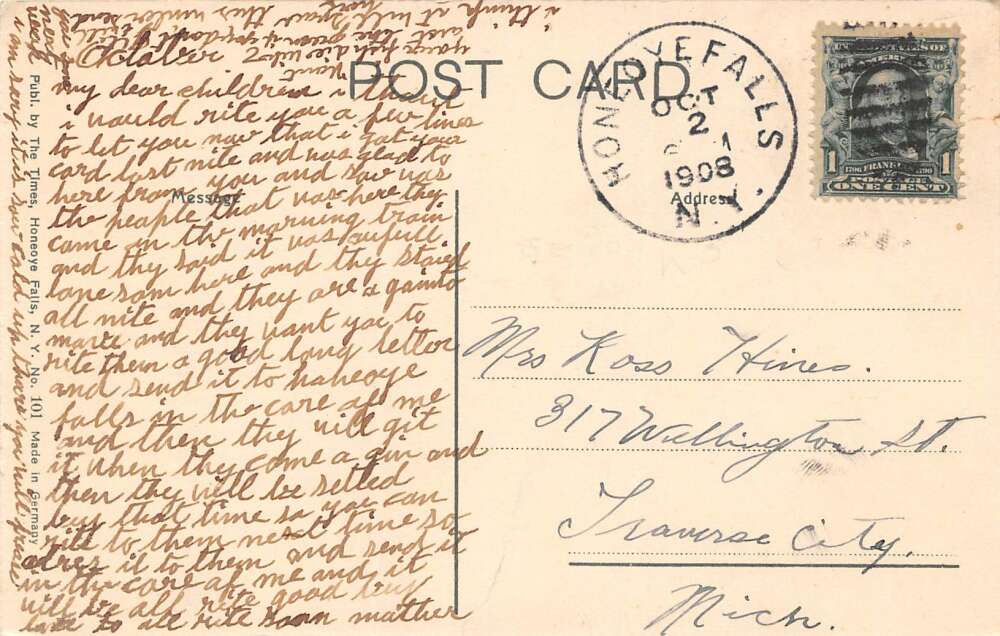 POST CARD
Message
Address
HONEOYE FALLS
OCT
2
1908
N.Y.
1
1706 FRANKLIN 1790
POSTAGE
ONE CENT
Publ. by The Times, Honeoye Falls, N. Y. No. 101 Made in Germany
October
my dear children i thaut
i would rite you a few lines
to let you now that i got your
card last nite and was glad to
here from you and so was
the peaple that vas here they
came in the marning train
and they said it vas
lone som here and they staied
all nite and they are a gainto
move and they vant you to
rite them a good long letter
and send it to haneoye
falls in the care of me
and then they vill git
it when they come a gin and
then they vill be setled
buy that time so you can
rite to them next time so
it to them and send it
in the care of me and it
vill be all rite good buy
love to all rite soon mather
i think it will
i am sory it is so cold up thare you will
Mrs Ross Hines.
317 Wellington St.
Traverse City,
Mich.